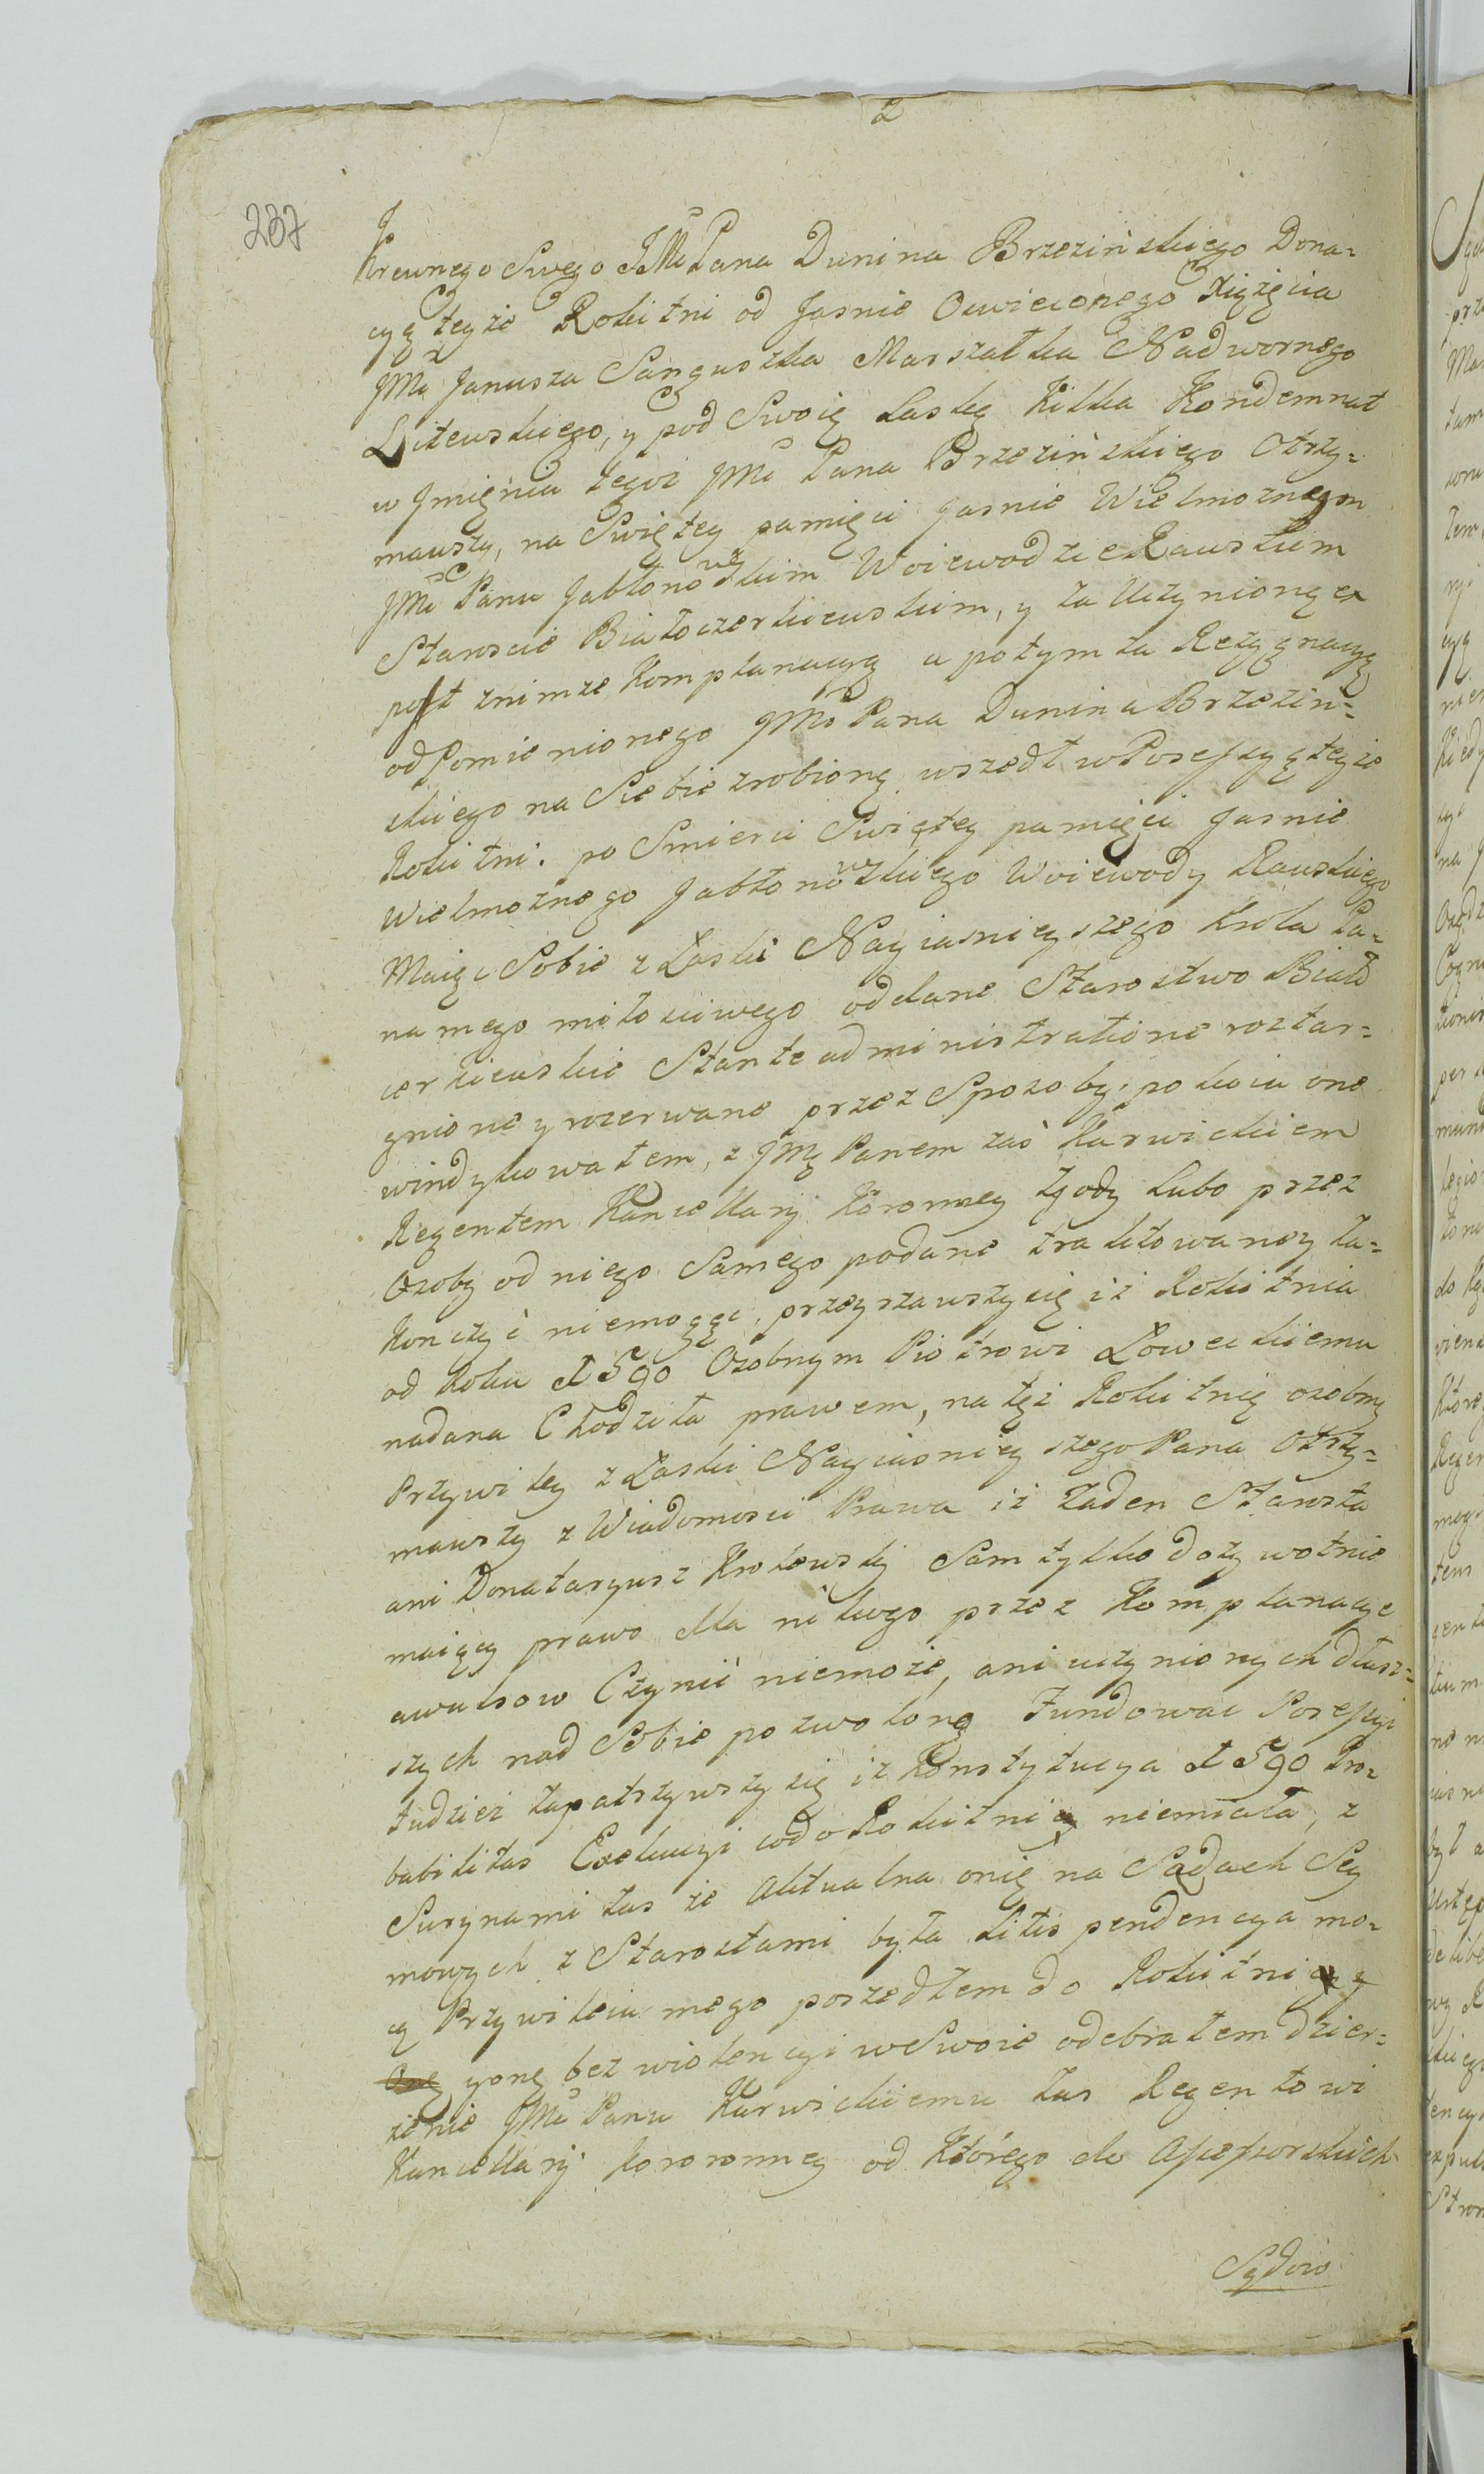 2
237
Krewnego Swego JMć Pana Dunina Brzezińskiego Dona=
cyą teyże Rokitni od Jasnie Oswieconego Xiążęcia
JMć Janusza Sanguszka Marszałka Nadwornego
Litewskiego, y pod Swoią Laską Kilka Kondemnat
w Jmięniu tegoż JMć Pana Brzezińskiego Otrzy=
mawszy, na Swiętey pamięci Jasnie Wielmożnym
JMć Panu Jabłonowskim Woiewodzie Rawskim
Staroscie Białoczerkiewskim, y za Uczynioną
post znimże Komplanacyą a potym za Rezygnacyą
od Pomienionego JMć Pana Dunina Brzeziń=
skiego na Siebie zrobioną wszedł w Posessyą teyże
Rokitni. po Smierci Swiętey pamięci Jasnie
Wielmożnego Jabłonowskiego Woiewody Rawskiego
Maiąc Sobie z Łaski Nayiasnieyszego Krola Pa=
na mego miłosciwego oddane Starostwo Biało
cerkiewskie Stante administratione roztar=
gnione y rozerwane przez Sposoby pokoiu one
windykowałem, z JMę Panem zaś Karwickiem
Regentem Kancellaryi Koronney Zgody Lubo przez
Osoby od niego Samego podane traktowaney za=
kończyć niemogąc, przeyrzawszy się iż Rokitnia
od Roku 1590 Osobnym Piotrowi Łoweckiemu
nadana Chodziła prawem, na też Rokitnię osobny
Przywiley z Łaski Nayiasnieyszego Pana Otrzy=
mawszy z Wiadomosci Prawa iż Żaden Starosta
ani Donataryusz Krolewski Sam tylko dożywotnie
maiący prawo dla nikogo przez Komplanacye
awulsow Czynić niemoże, ani uczynionych dłuż=
szych nad Sobie pozwoloną Fundować Posessyi
tudzież zapatrzywszy się iż Konstytucya 1590 Pro=
babilitas Exekucyi codo Rokitni niemiała, z
Surynami zas że Aktualna onię na Sądach Sey
mowych z Starostami była Litis pendencya mo=
cą Przywileiu mego poszedłem do Rokitni
yonę bez wiolencyi w Swoie odebrałem dzier=
żenie JMć Panu Karwickiemu zas Regentowi
Kancellaryi Kororonney od Którego do Assessorskich
Sądow